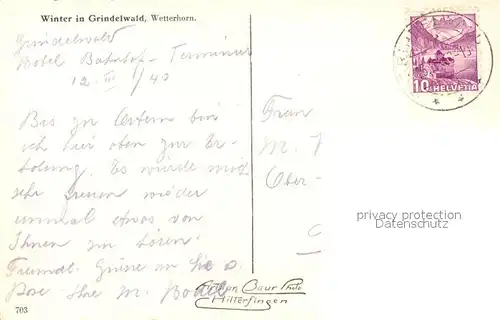 Winter in Grindelwald, Wetterhorn.
Grindelwald
Hotel Bahnhof-Terminus
12. III / 40
Bis zu Ostern bin
ich hier oben zur Er-
holung. Es würde mich
sehr freuen wieder
einmal etwas von
Ihnen zu hören.
Freundl. Grüsse an Sie
Ihre M.
703
Frau
M.
Ober-
10 HELVETIA
privacy protection
Datenschutz
Baur Photo
Hilterfingen